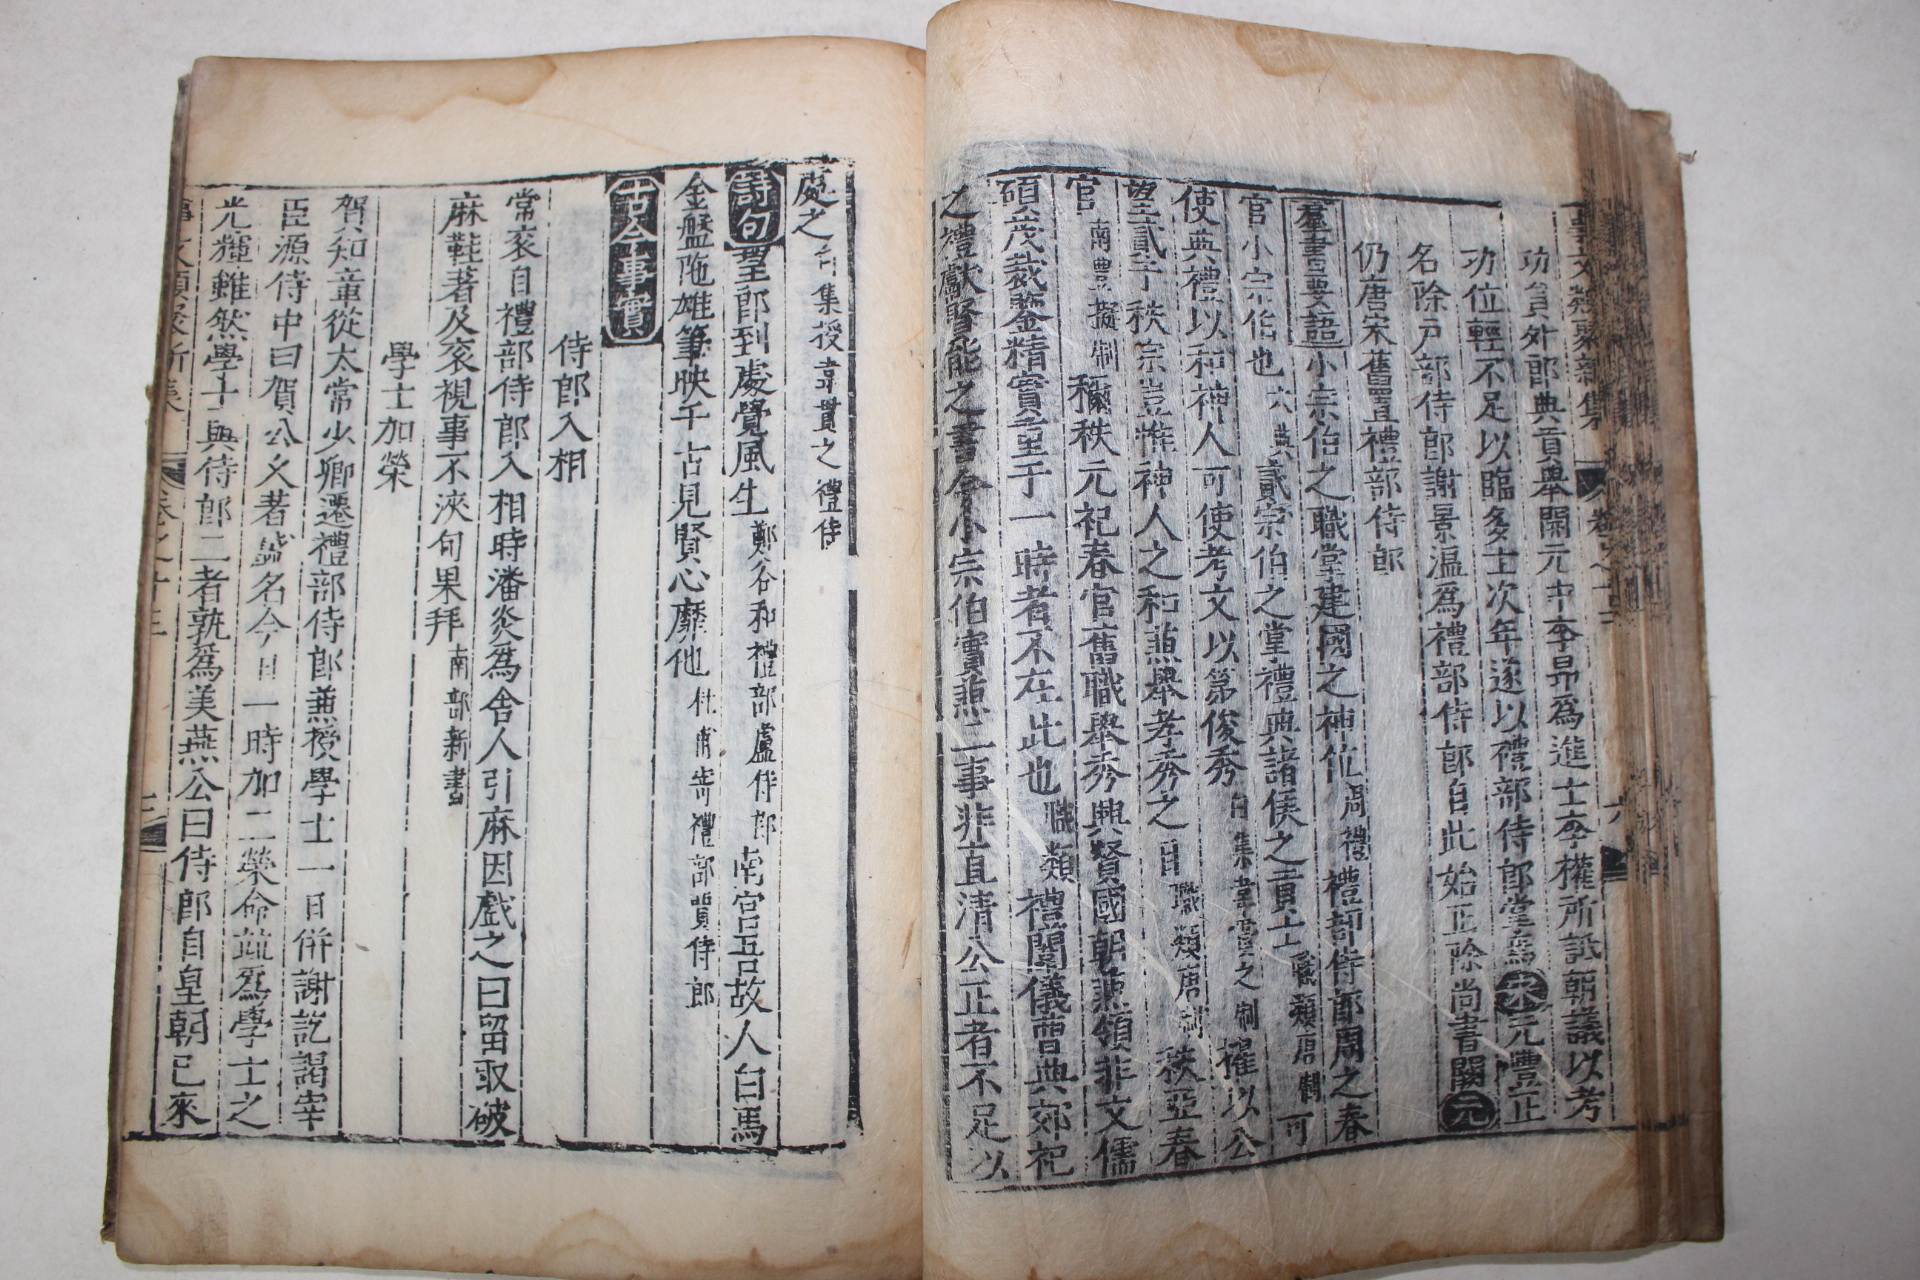 事文類聚新集 卷之十三 六
功員外郎典貢舉開元中李昂爲進士李權所詆朝議以考
功位輕不足以臨多士次年遂以禮部侍郎掌焉宋元豐正
名除戶部侍郎謝景溫爲禮部侍郎自此始正除尚書闕元
仍唐宋舊置禮部侍郎
羣書要語小宗伯之職掌建國之神位周禮禮部侍郎周之春
官小宗伯也六典貳宗伯之掌禮典諸侯之貢士職類唐制可
使典禮以和神人可使考文以第俊秀白集韋雲之制擢以公
望貳于秩宗豈惟神人之和兼舉孝秀之目職類唐制秩亞春
官南豐擬制穪秩元祀春官舊職舉秀興賢國朝兼領非文儒
碩茂裁鑒金精實至于一時者不在此也職類禮闈儀曹典郊祀
之禮獻賢能之書今小宗伯實兼二事非直清公正者不足以
處之白集授韋貫之禮侍
詩句望郎到處覺風生鄭谷和禮部盧侍郎南宮吾故人白馬
金盤陁雄筆映千古見賢心靡他杜甫寄禮部賈侍郎
古今事實
侍郎入相
常衮自禮部侍郎入相時潘炎爲舍人引麻因戲之曰留取破
麻鞋著及衮視事不浹旬果拜南部新書
學士加榮
賀知章從太常少卿遷禮部侍郎兼授學士一日併謝訖謁宰
臣源侍中曰賀公文著盛名今日一時加二榮命並爲學士之
光輝雖然學士與侍郎二者孰爲美燕公曰侍郎自皇朝已來
事文類聚新集 卷之十三